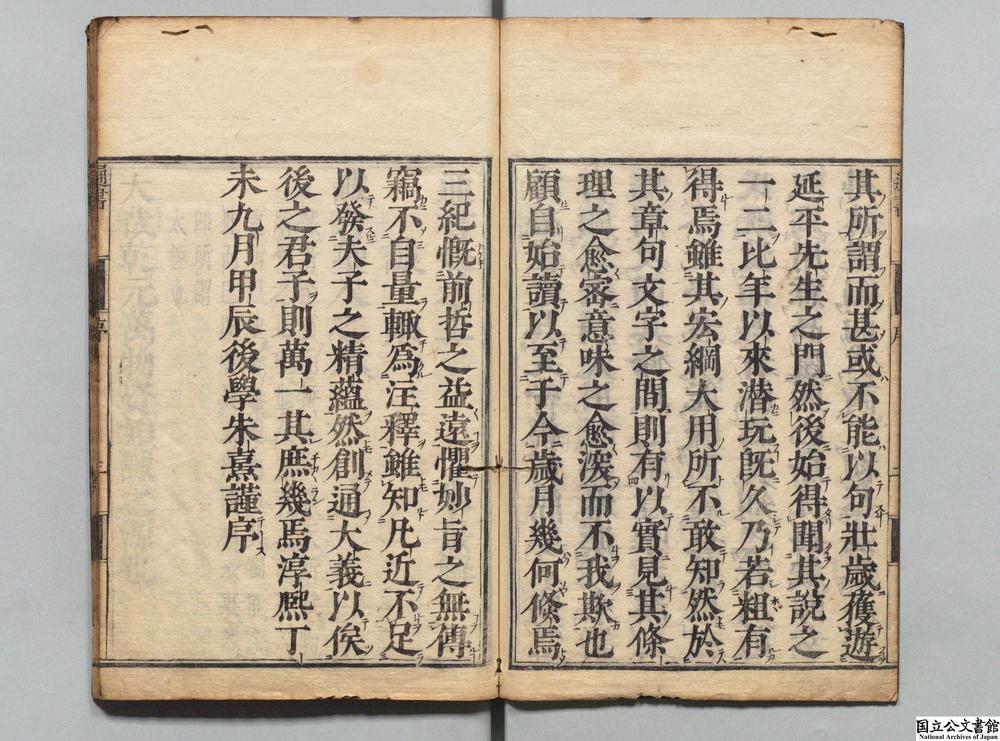 其所謂而甚或不能以句壯歲獲遊
延平先生之門然後始得聞其說之
一二比年以來潜玩既久乃若粗有
得焉雖其宏綱大用所不敢知然於
其章句文字之間則有以實見其條
理之愈密意味之愈深而不我欺也
顧自始讀以至于今歲月幾何倏焉
三紀慨前哲之益遠懼妙旨之無傳
竊不自量輙爲注釋雖知凡近不足
以發夫子之精蘊然創通大義以俟
後之君子則萬一其庶幾焉淳熈丁
未九月甲辰後學朱熹謹序
通書
序
三
国立公文書館
National Archives of Japan